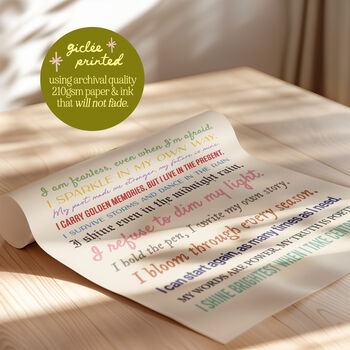 giclée
printed
using archival quality
210gsm paper & ink
that will not fade.
I am fearless, even when I'm afraid.
I SPARKLE IN MY OWN WAY.
My past made me stronger, my future is mine.
I CARRY GOLDEN MEMORIES, BUT I LIVE IN THE PRESENT.
I SURVIVE STORMS AND DANCE IN THE RAIN
I shine even in the midnight rain.
I refuse to dim my light.
I hold the pen, I write my own story.
I bloom through every season.
I can start again, as many times as I need
MY WORDS ARE POWER, MY TRUTH IS
I SHINE BRIGHTEST WHEN I TAKE